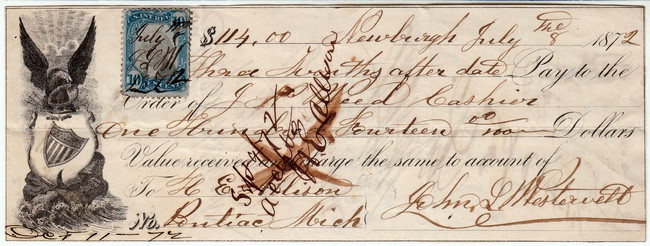 U.S. INT. REV.
10
$114.00 Newburgh July The 8 1872
Three Months after date Pay to the
Order of J Reed Cashier
One Hundred Fourteen 00/100 Dollars
Value received and charge the same to account of
To H E Allison John L Westervelt
No. Pontiac Mich
Oct 11-72